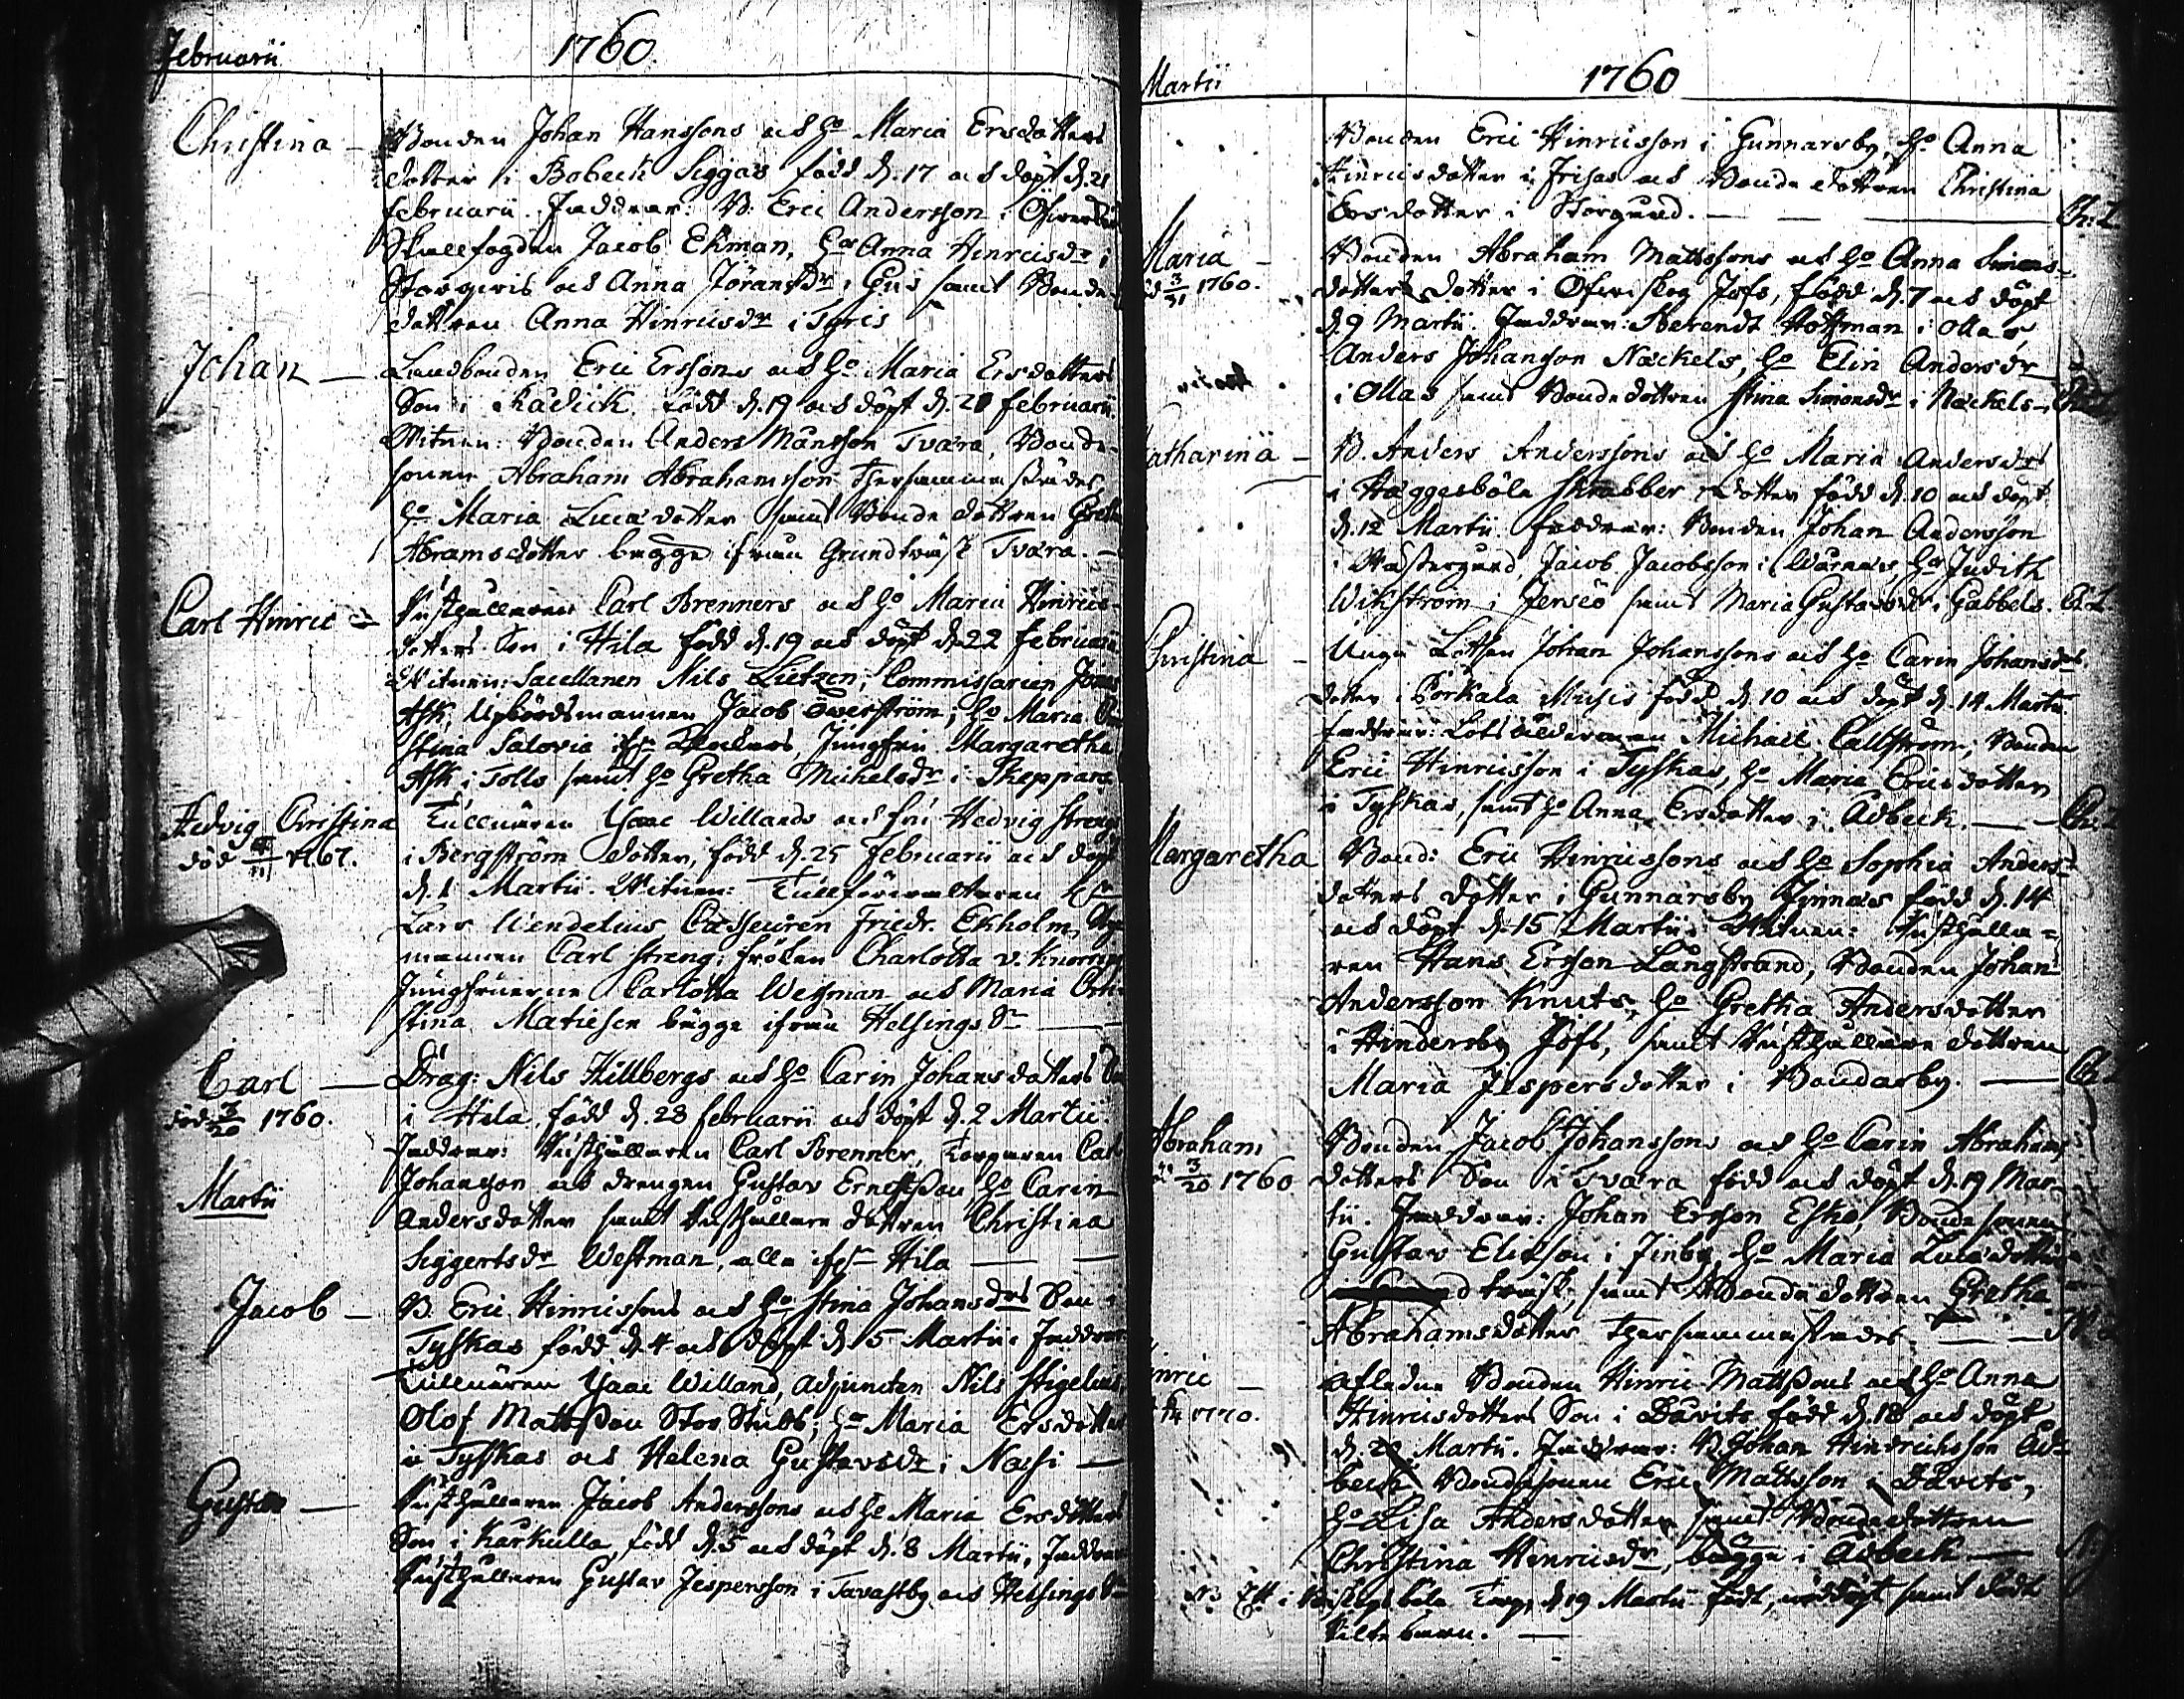 Februarii 1760.
Christina — Bonden Johan Hanssons och H:o Maria Ersdotters
dotter i Bobeck Siggas född d. 17 och döpt d. 21
Februarii. Faddrar: B. Eric Andersson i Öfwerby
Jacob Ekman, H:or Anna Hinricsdr i
och Anna Jöransdr i Gus samt Bonde
dottren Anna Hinricsdr i Tgris
Johan — Landbonden Eric Erssons och H:o Maria Ersdotters
Son i Rådick född d. 19 och döpt d. 20 Februarii.
Witnen: Bonden Anders Månsson Tvära, Bonde-
sonen Abraham Abrahamsson thersammastädes,
H:o Maria Lucædotter samt Bonde dottren Gretha
Abramsdotter bägge ifrån Grundträsk Tvära. —
Carl Hinric — Rusthållaren Carl Brenners och H:o Maria Hinrics-
dotters Son i Hila född d. 19 och döpt d. 22 Februarii
Witnen: Sacellanen Nils Lietzen, Commissarien Jonas
Ask, Upbördsmannen Jacob Öwerström, H:o Maria Chri-
stina Salovia ifr. Jungfru Margaretha
Ask i Tolls samt H:o Gretha Michelsdr i Skeppars
Hedvig Christina Tullnären Isaac Willands och fru Hedvig Streng
död 1767. i Bergström dotter, född d. 25 Februarii och döpt
d. 1 Martii. Witnen: Tullförvaltaren Hr
Lars Wendelius Casseuren Friedr. Ekholm,
mannen Carl Streng, fröken Charlotta v. Knorring
Jungfruerna Carlotta Weisman och Maria Chri-
stina Matiesen bägge ifrån Helsingfrs —
Carl — Drag: Nils Hillbergs och H:o Carin Johansdotters Son
död 3/20 1760. i Hila, född d. 28 Februarii och döpt d. 2 Martii.
Faddrar: Rusthållaren Carl Brenner, Torparen Carl
Martii Johansson och drengen Gustav Ernestsson, H:o Carin
Andersdotter samt Rusthållare dottren Christina
Siggertsdr Westman, alla ifr. Hila —
Jacob — B. Eric Hinricssons och H:o Stina Johansdrs Son i
Tyskas född d. 4 och döpt d. 5 Martii. Faddrar
Tullnären Isaac Willand, adjuncten Nils Stigelius,
Olof Mattsson Stor Stubb, H:o Maria Ersdotter
i Tyskas och Helena Gustavsdr i Nassi —
Gustav — Rusthållaren Jacob Anderssons och H:o Maria Ersdotters
Son i Karkulla född d. 5 och döpt d. 8 Martii, Faddrar
Rusthållaren Gustav Jespersson i Tavastby och Helsinge Sn
Martii 1760
Bonden Eric Hinricsson i Gunnarsby, H:o Anna
Hinricsdotter i Frisas och Bonde dottren Christina
Ersdotter i Störgård. — Chr. L
Maria — Bonden Abraham Mattssons och H:o Anna Simons-
död 3/31 1760. dotters dotter i Öfwerskog Jofs, född d. 7 och döpt
d. 9 Martii. Faddrar: Berendt Hoffman i Ollas,
Anders Johansson Näckels, H:o Elin Andersdr
i Ollas samt Bondedottren Stina Simonsdr i Näckels —
Catharina — B. Anders Anderssons och H:o Maria Andersdrs
i Häggesböle Skrabber dotter född d. 10 och döpt
d. 12 Martii. Faddrar: Bonden Johan Andersson
i Westergård, Jacob Jacobsson i Wärnäs, H:o Judith
Wikström i Jersö samt Maria Gustavsdr i Gabbels. Ch L
Christina — Unga Lotsen Johan Johanssons och H:o Carin Johansdrs
dotter i Porkala Michis född d. 10 och döpt d. 14 Martii.
Faddrar: Lotsåldermannen Michael Callström, Bonden
Eric Hinricsson i Tyskas, H:o Maria Ericsdotter
i Tyskas, samt H:o Anna Ersdotter i Adbeck. — Chr.
Margaretha Bond: Eric Hinricssons och H:o Sophia Anders-
dotters dotter i Gunnarsby Finnas född d. 14
och döpt d. 15 Martii. Witnen: Rusthålla-
ren Hans Ersson Långstrand, Bonden Johan
Andersson Knuts, H:o Gretha Andersdotter
i Hindersby Jofs, samt Rusthållare dottren
Maria Jespersdotter i Bondarby. — Ch
Abraham Bonden Jacob Johanssons och H:o Carin Abrahams
död 3/20 1760 dotters Son i Tvära född och döpt d. 19 Mar-
tii. Faddrar: Johan Ersson Eskis, Bonde sonen
Gustav Ericsson i Finby H:o Maria Lucædotter
träsk, samt Bonde dottren Gretha
Abrahamsdotter thersammastädes —
Hinric — aflednе Bonden Hinric Mattssons och H:o Anna
1770. Hinricsdotters Son i Dåvits född d. 18 och döpt
d. 20 Martii. Faddrar: B. Johan Hindrichsson Ad-
beck Bondesonen Eric Mattsson i Dåvits,
H:o Lisa Andersdotter samt Bondedottren
Christina Hinricsdr, bägge i Adbeck —
NB Ett i böle Torp, d. 19 Martii födt, nöddöpt samt dödt
Pilte barn. —